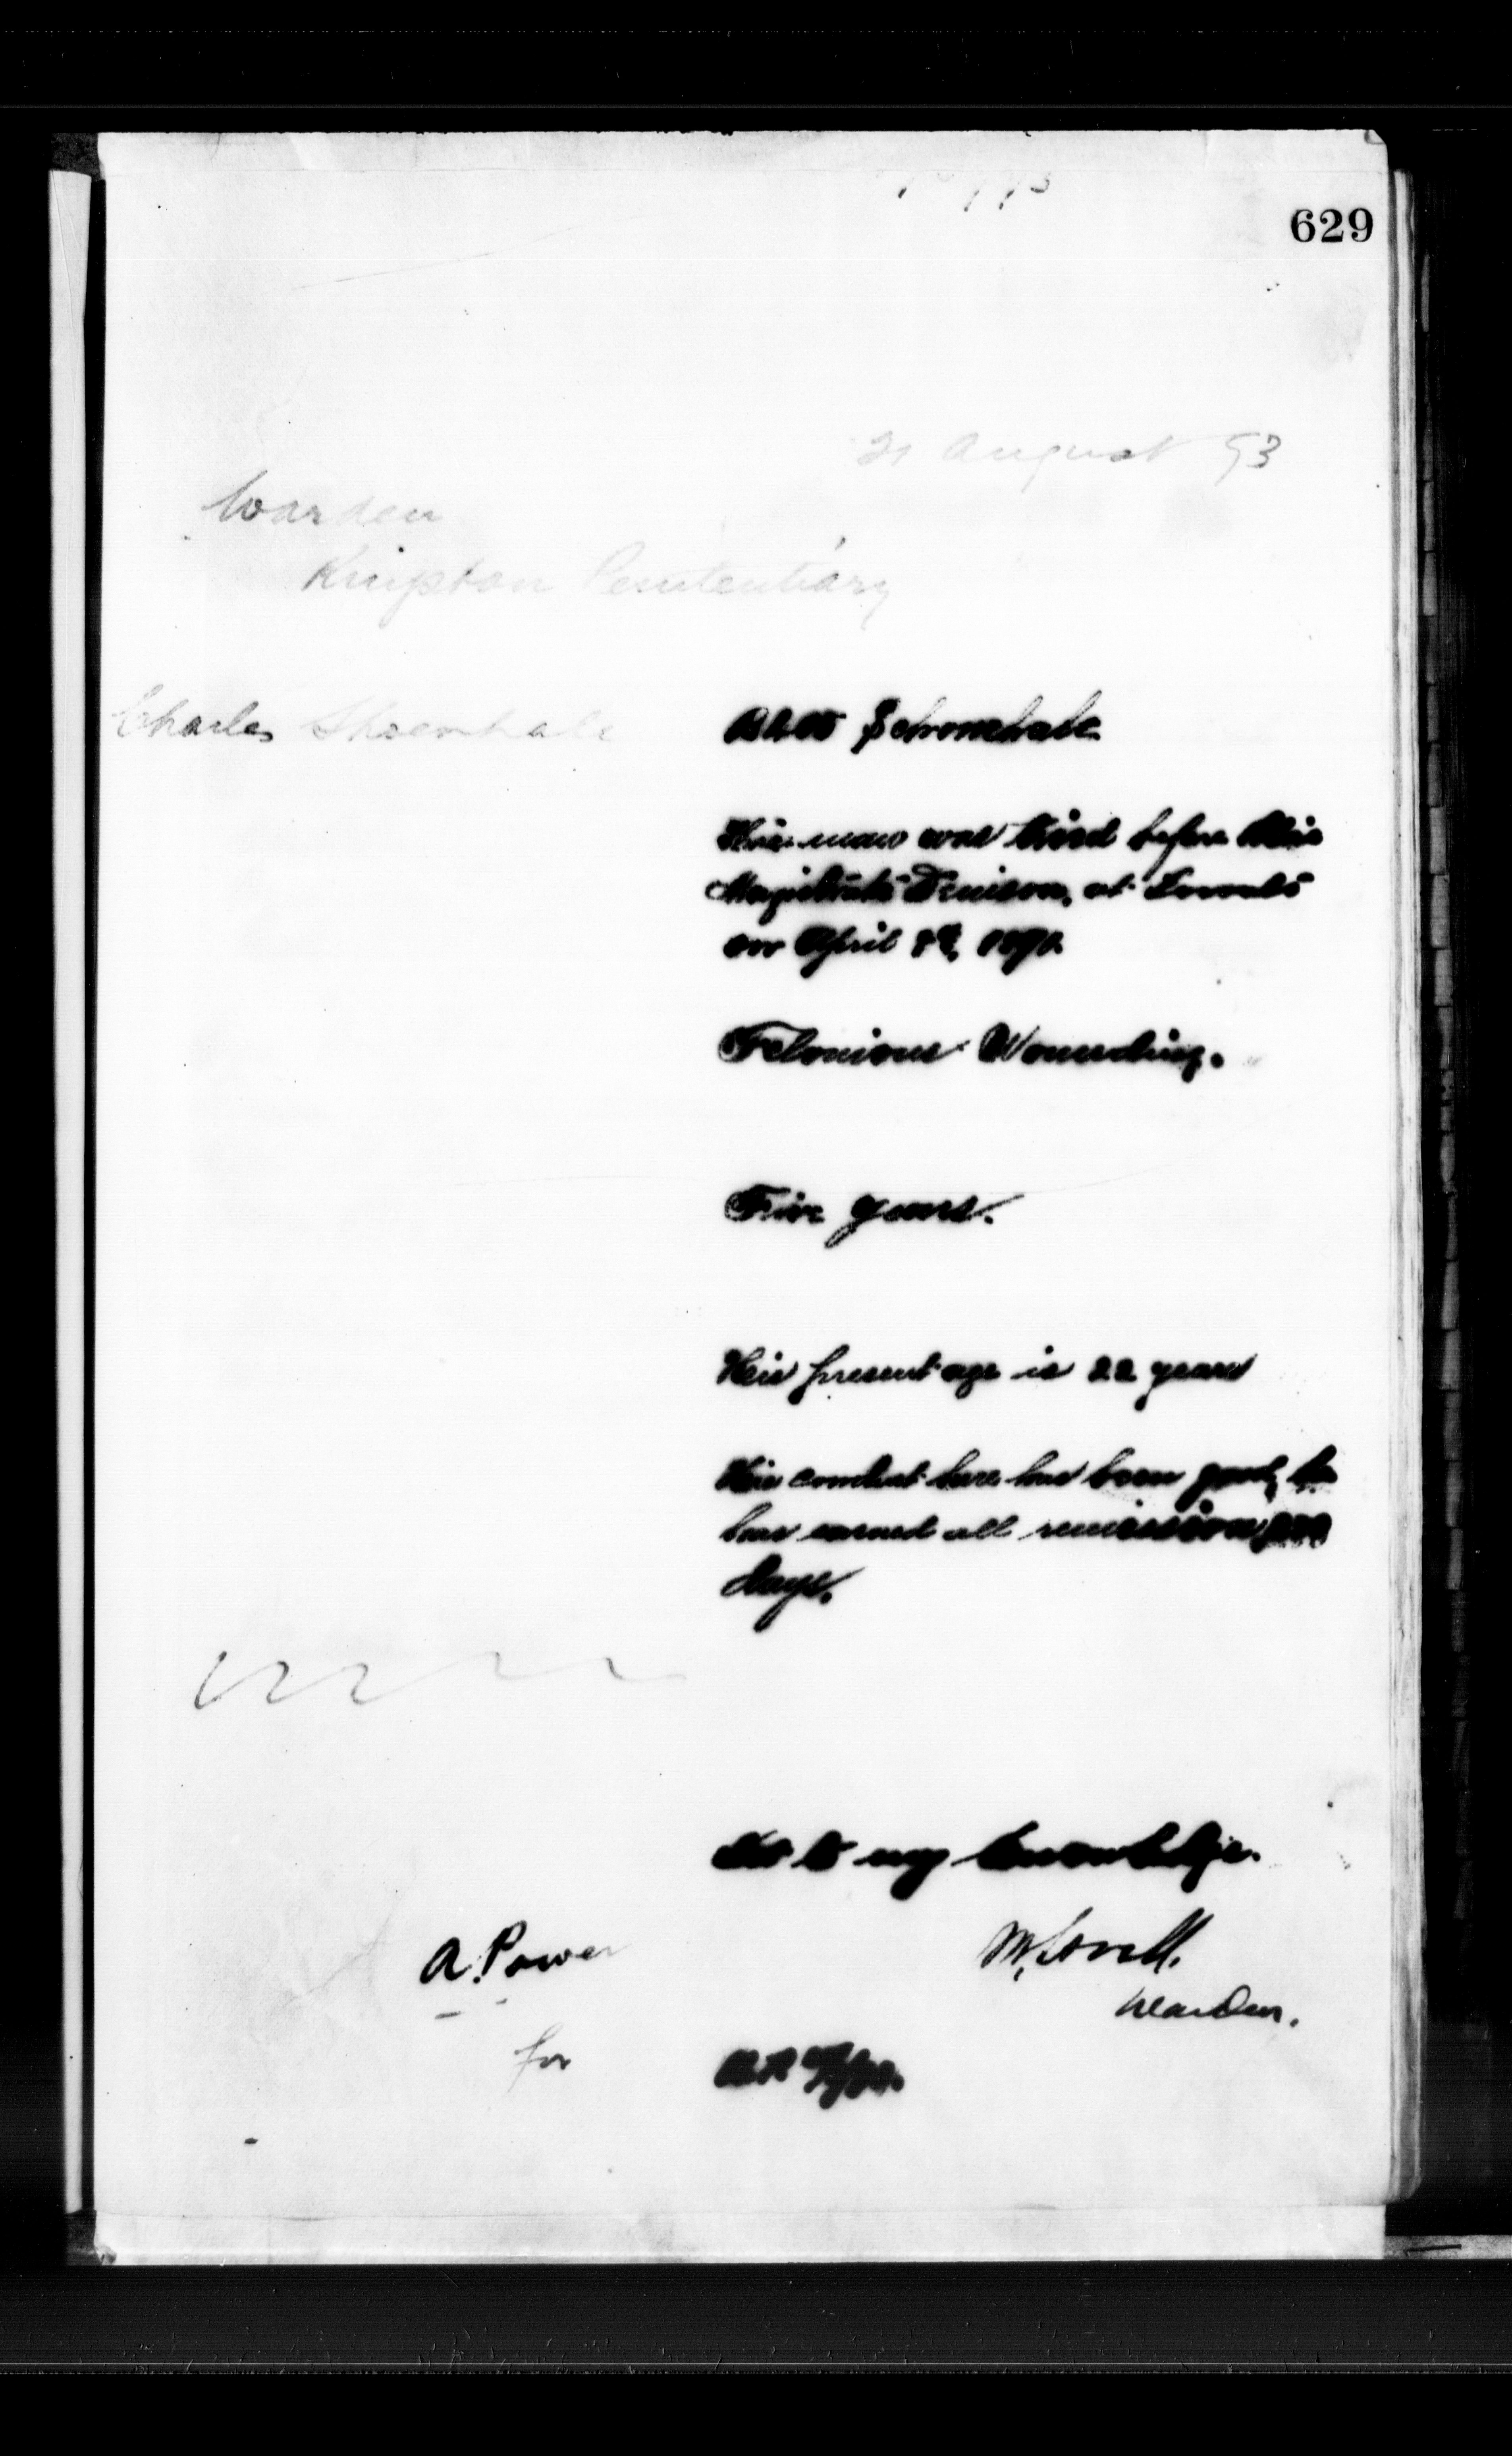 629
21 August 93
Warden
Kingston Penitentiary
Charles Shoenhale
This man was tried before
Magistrate Denison, at Toronto
on April
Felonious Wounding.
Five years.
His present age is 22 years
His conduct here has been good, he
has earned all remission
days.
Not to my knowledge.
A. Power
Warden.
for